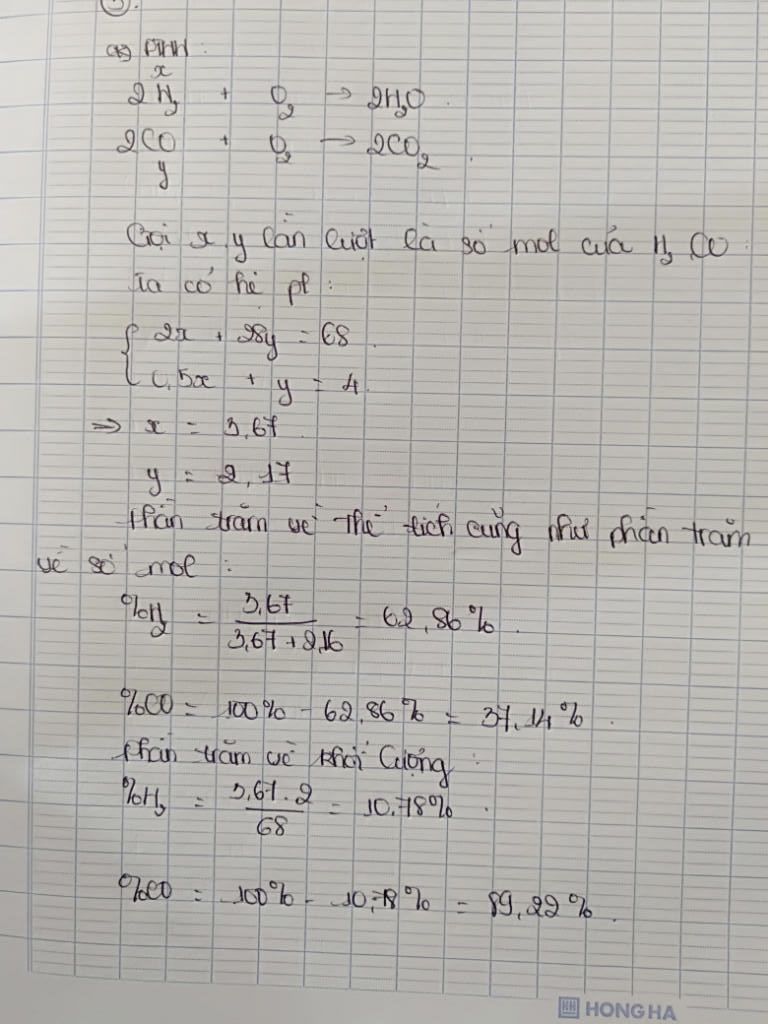 3.
a) PTHH:
x
2H₂ + O₂ → 2H₂O.
2CO + O₂ → 2CO₂.
y
Gọi x, y lần lượt là số mol của H₂ CO.
Ta có hệ pt:
{ 2x + 28y = 68.
0,5x + y = 4.
=> x = 3,67.
y = 2,17
Phần trăm về thể tích cũng như phần trăm
về số mol:
%H₂ = 3,67 / (3,67 + 2,16) = 62,86%.
%CO = 100% - 62,86% = 37,14%.
Phần trăm về khối lượng:
%H₂ = 3,67.2 / 68 = 10,78%.
%CO = 100% - 10,78% = 89,22%.
HH HONG HA